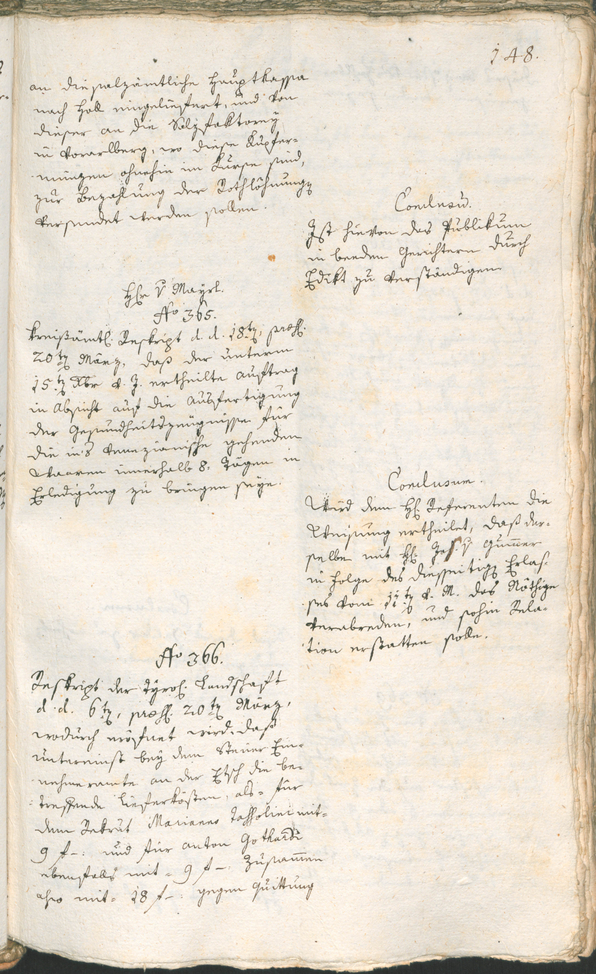 148.
an die salzämtliche Hauptkassa
nach Hall eingeliefert, und von
dieser an die Salzfaktorey
in Vorarlberg, wo diese Kupfer-
münzen ohnehin im Kurse sind,
zur Bezahlung der Rothlöhnung
versendet werden sollen.
Conclusu.
Ist hievon das Publikum
in beeden Gerichtern durch
Edikt zu verständigen
H: v Mayrl.
No 365.
Kreisämtl: Reskript d. d. 18t, præs:
20t März, daß der unterm
15t Xbr v. J. ertheilte Auftrag
in Absicht auf die Ausfertigung
der Gesundheitszeugnisse für
die in's Venezianische gehenden
Waaren innerhalb 8. Tägen in
Erledigung zu bringen seye.
Conclusum.
Wird dem H: Referenten die
Weisung ertheilet, daß der-
selbe mit H: Jos: v Gumer
in Folge des diesseitig Erlas-
ses vom 11t v. M. das Nöthige
verabreden, und sohin Rela-
tion erstatten solle.
No 366.
Reskript der Tyrol: Landschaft
d. d. 6t, præs: 20t März,
wodurch eröfnet wird, daß
unter einst bey dem Steuer Ein-
nehmeramte an der Etsch die be-
treffende Lieferkösten, als für
dem Rekrut Mariano mit-
9 f-. und für Anton Gothard
ebenfals mit- 9 f-. Zusammen
also mit- 18 f-. gegen Quittung